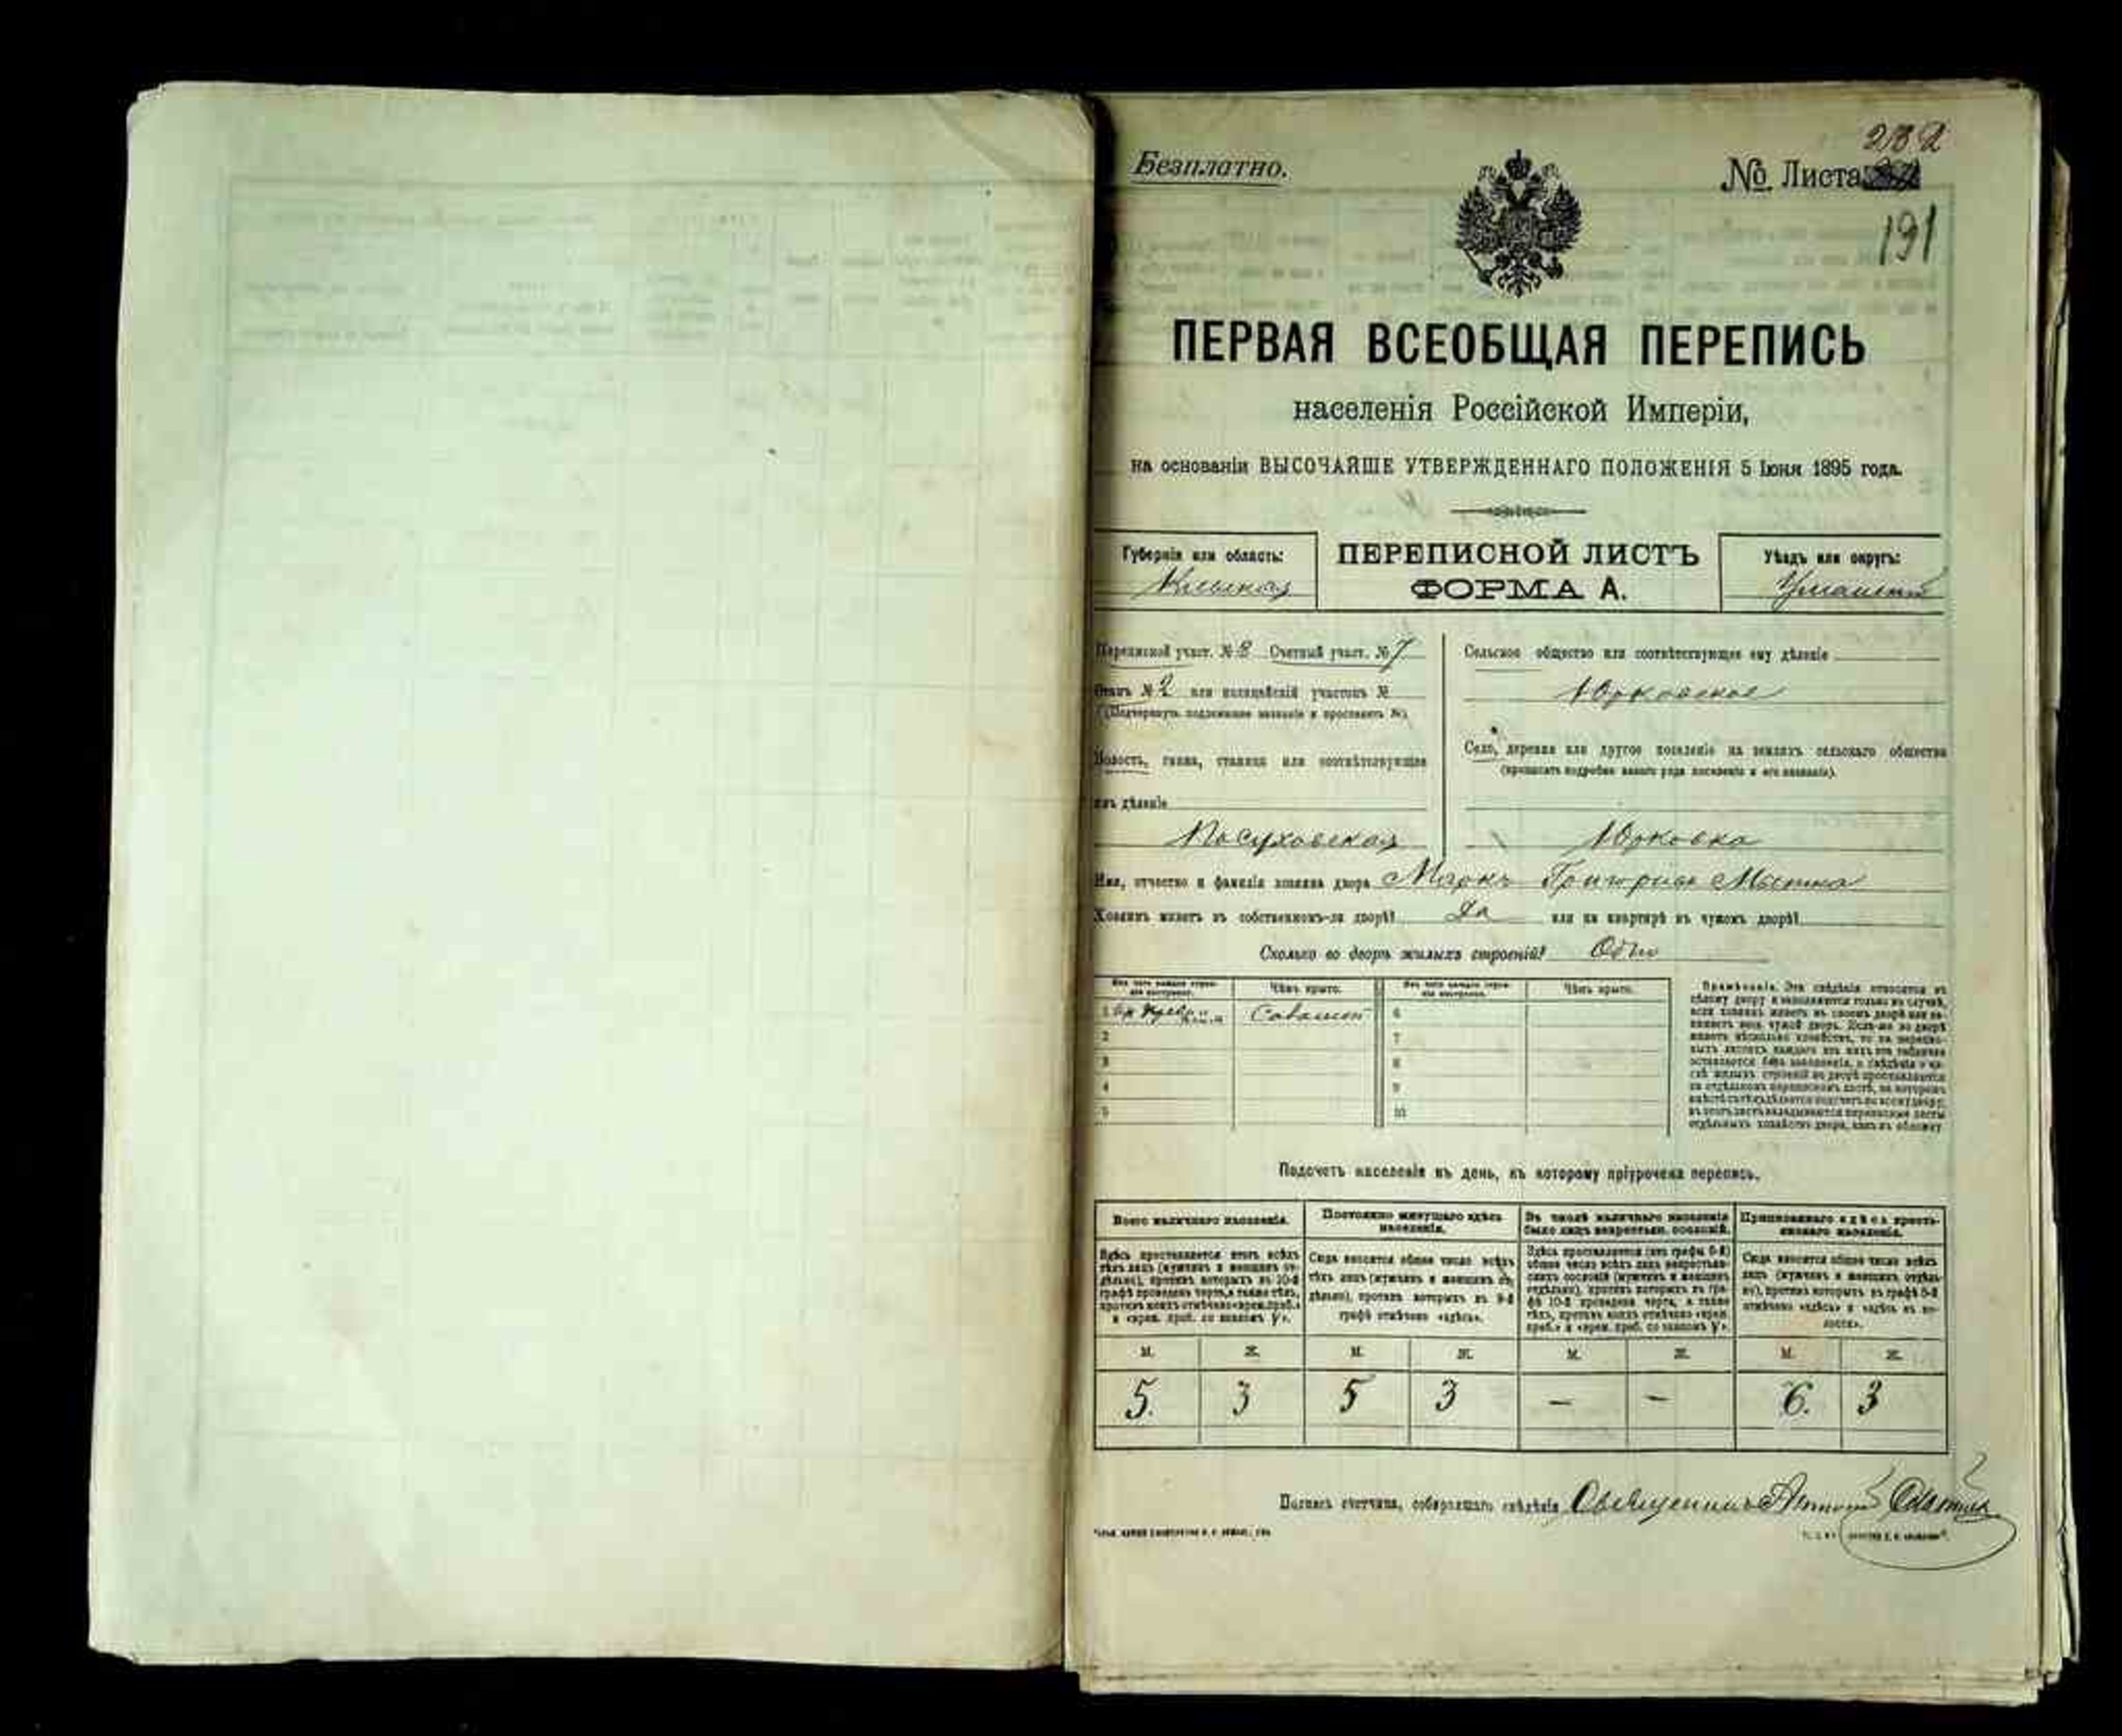 Безплатно.
232
№ Листа
191
ПЕРВАЯ ВСЕОБЩАЯ ПЕРЕПИСЬ
населенія Россійской Имперіи,
на основаніи ВЫСОЧАЙШЕ УТВЕРЖДЕННАГО ПОЛОЖЕНІЯ 5 Іюня 1895 года.
Губернія или область:
Кіевская
ПЕРЕПИСНОЙ ЛИСТЪ
ФОРМА А.
Уѣздъ или округъ:
Уманскій
Переписной участ. № 8 Счетный участ. № 7
Станъ № 2 или полицейскій участокъ №
(Подчеркнуть подлежащее названіе и проставить №)
Волость, гмина, станица или соотвѣтствующее
имъ дѣленіе
Посуховская
Сельское общество или соотвѣтствующее ему дѣленіе
Юрковское
Село, деревня или другое поселеніе на земляхъ сельскаго общества
(прописать подробно какого рода поселеніе и его названіе).
Юрковка
Имя, отчество и фамилія хозяина двора Маркъ Григорьев
Хозяинъ живетъ въ собственномъ-ли дворѣ? Да или на квартирѣ въ чужомъ дворѣ?
Сколько во дворѣ жилыхъ строеній? Одно
Изъ чего каждое строе-
ніе выстроено.
Чѣмъ крыто.
Изъ чего каждое строе-
ніе выстроено.
Чѣмъ крыто.
1 Соломой 6
2 7
3 8
4 9
5 10
Примѣчаніе. Эти свѣдѣнія относятся къ
цѣлому двору и заполняются только въ случаѣ,
если хозяинъ живетъ въ своемъ дворѣ или за-
нимаетъ весь чужой дворъ. Если-же во дворѣ
живетъ нѣсколько хозяйствъ, то на перепис-
ныхъ листахъ каждаго изъ нихъ эта табличка
оставляется безъ заполненія, а свѣдѣнія о чи-
слѣ жилыхъ строеній во дворѣ проставляются
на отдѣльномъ переписномъ листѣ, на которомъ
вмѣстѣ съ тѣмъ дѣлается подсчетъ по всему двору;
въ этотъ листъ вкладываются переписные листы
отдѣльныхъ хозяйствъ двора, какъ въ обложку
Подсчетъ населенія въ день, къ которому пріурочена перепись.
Всего наличнаго населенія.
Постоянно живущаго здѣсь
населенія.
Въ числѣ наличнаго населенія
было лицъ некрестьян. сословій.
Приписаннаго здѣсь кресть-
янскаго населенія.
Здѣсь проставляется итогъ всѣхъ
тѣхъ лицъ (мужчинъ и женщинъ от-
дѣльно), противъ которыхъ въ 10-й
графѣ проведена черта, а также тѣхъ,
противъ коихъ отмѣчено «врем. преб.»
и «врем. преб. со знакомъ V».
Сюда вносится общее число всѣхъ
тѣхъ лицъ (мужчинъ и женщинъ от-
дѣльно), противъ которыхъ въ 9-й
графѣ отмѣчено «здѣсь».
Здѣсь проставляется (изъ графы 6-й)
общее число всѣхъ лицъ некрестьян-
скихъ сословій (мужчинъ и женщинъ
отдѣльно), противъ которыхъ въ гра-
фѣ 10-й проведена черта, а также
тѣхъ, противъ коихъ отмѣчено «врем.
преб.» и «врем. преб. со знакомъ V».
Сюда вносится общее число всѣхъ
лицъ (мужчинъ и женщинъ отдѣль-
но), противъ которыхъ въ графѣ 8-й
отмѣчено «здѣсь» и «здѣсь въ во-
лости».
М. Ж. М. Ж. М. Ж. М. Ж.
5. 3 5 3 — — 6. 3
Подпись счетчика, собиравшаго свѣдѣнія Священникъ